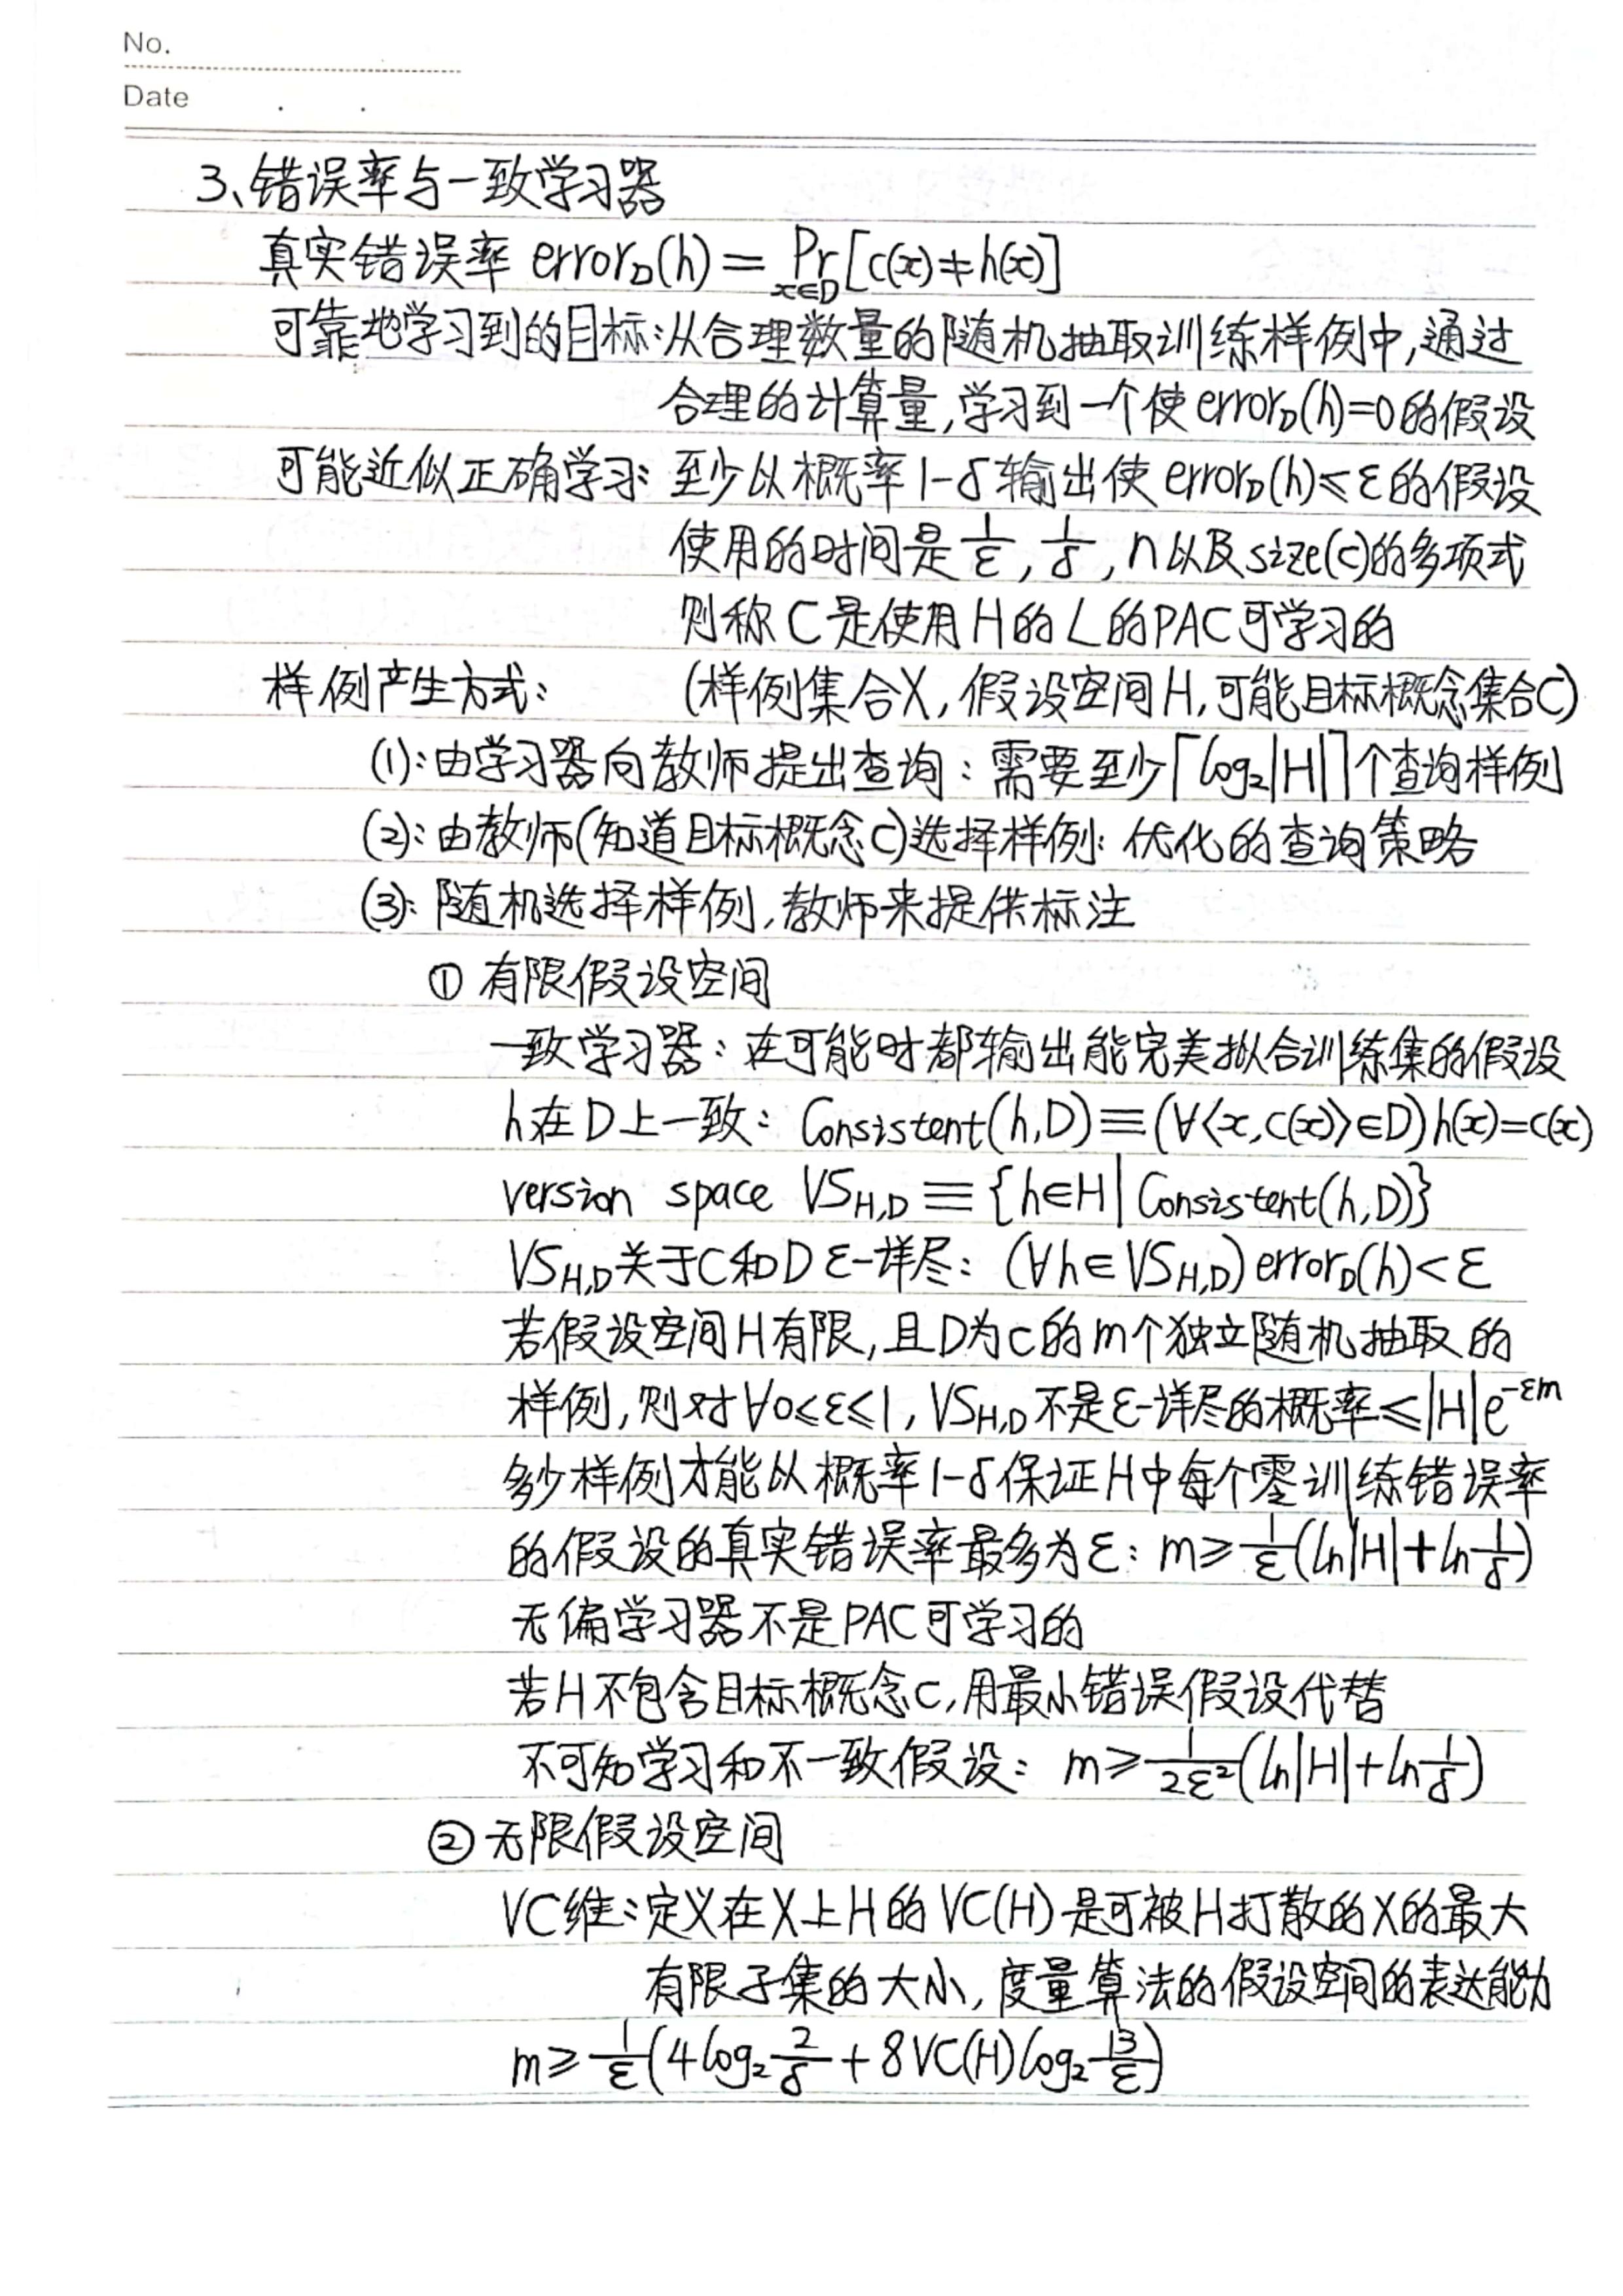 No.
Date . .
3、错误率与一致学习器
真实错误率 error_D(h) = Pr_{x∈D}[c(x)≠h(x)]
可靠地学习到的目标:从合理数量的随机抽取训练样例中,通过
合理的计算量,学习到一个使error_D(h)=0的假设
可能近似正确学习: 至少以概率1-δ输出使error_D(h)≤ε的假设
使用的时间是 1/ε, 1/δ, n以及size(c)的多项式
则称C是使用H的L的PAC可学习的
样例产生方式: (样例集合X, 假设空间H, 可能目标概念集合C)
(1):由学习器向教师提出查询: 需要至少⌈log₂|H|⌉个查询样例
(2):由教师(知道目标概念C)选择样例: 优化的查询策略
(3): 随机选择样例,教师来提供标注
① 有限假设空间
一致学习器: 在可能时都输出能完美拟合训练集的假设
h在D上一致: Consistent(h,D)≡(∀<x,c(x)>∈D)h(x)=c(x)
version space VS_{H,D} ≡ {h∈H| Consistent(h,D)}
VS_{H,D}关于C和D ε-详尽: (∀h∈VS_{H,D}) error_D(h)<ε
若假设空间H有限,且D为c的m个独立随机抽取的
样例,则对∀0≤ε≤1, VS_{H,D}不是ε-详尽的概率≤|H|e^{-εm}
多少样例才能以概率1-δ保证H中每个零训练错误率
的假设的真实错误率最多为ε: m≥1/ε(ln|H|+ln 1/δ)
无偏学习器不是PAC可学习的
若H不包含目标概念c,用最小错误假设代替
不可知学习和不一致假设: m≥1/(2ε²)(ln|H|+ln 1/δ)
② 无限假设空间
VC维:定义在X上H的VC(H)是可被H打散的X的最大
有限子集的大小,度量算法的假设空间的表达能力
m≥1/ε(4log₂ 2/δ + 8VC(H)log₂ 13/ε)